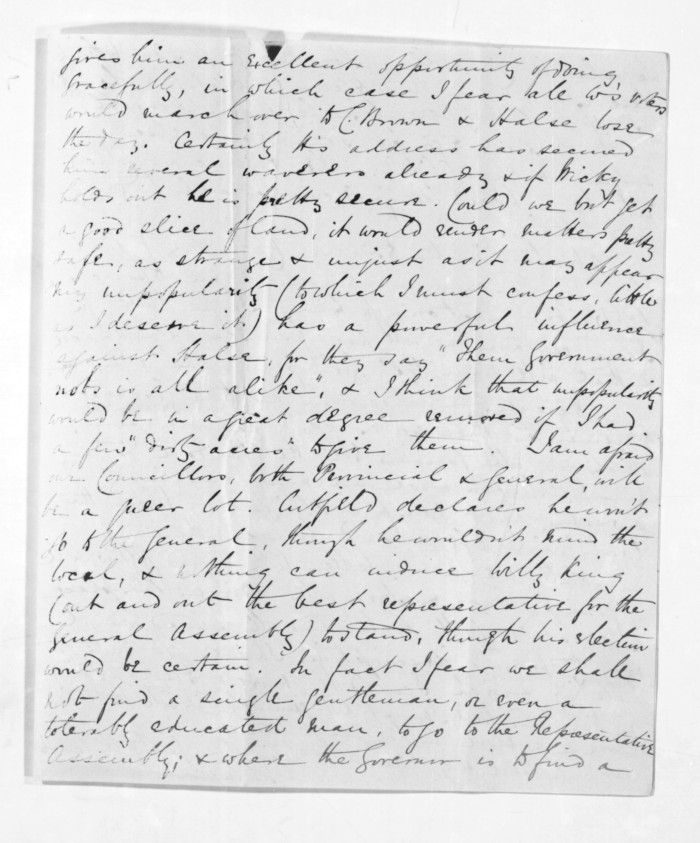 gives him an excellent opportunity of doing
gracefully, in which case I fear all W's voters
would march over to C. Brown & Halse lose
the day. Certainly His address has secured
him several waverers already & if Wicky
holds out he is pretty secure. Could we but get
a good slice of land, it would render matters pretty
safe, as strange & unjust as it may appear
my unpopularity (to which I must confess, little
as I deserve it.) has a powerful influence
against Halse, for they say "Them Government
nobs is all alike", & I think that unpopularity
would be in a great degree removed if I had
a few "dirty acres" to give them. I am afraid
our Councillors, both Provincial & General, will
be a queer lot. Cutfield declares he won't
go to the General, though he wouldn't mind the
local, & nothing can induce Willy King
(out and out the best representative for the
General Assembly) to stand, though his election
would be certain. In fact I fear we shall
not find a single gentleman, or even a
tolerably educated man, to go to the Representative
Assembly; & where the Governor is to find a